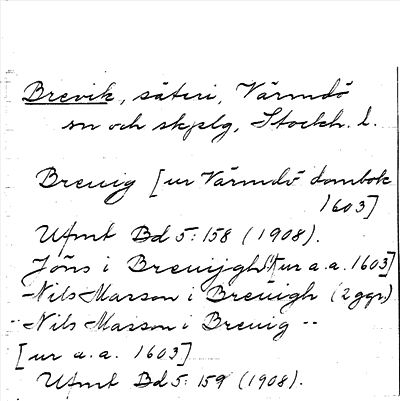 Brevik, säteri, Värmdö
sn och skplg, Stockh. l.
Breuig [ur Värmdö dombok
1603]
Ufmt Bd 5:158 (1908).
Jöns i Breuijgh [ur a.a. 1603]
Nils Marson i Breuigh (2 ggr)
Nils Marson i Breuig --
[ur a.a. 1603]
Ufmt Bd 5:159 (1908).